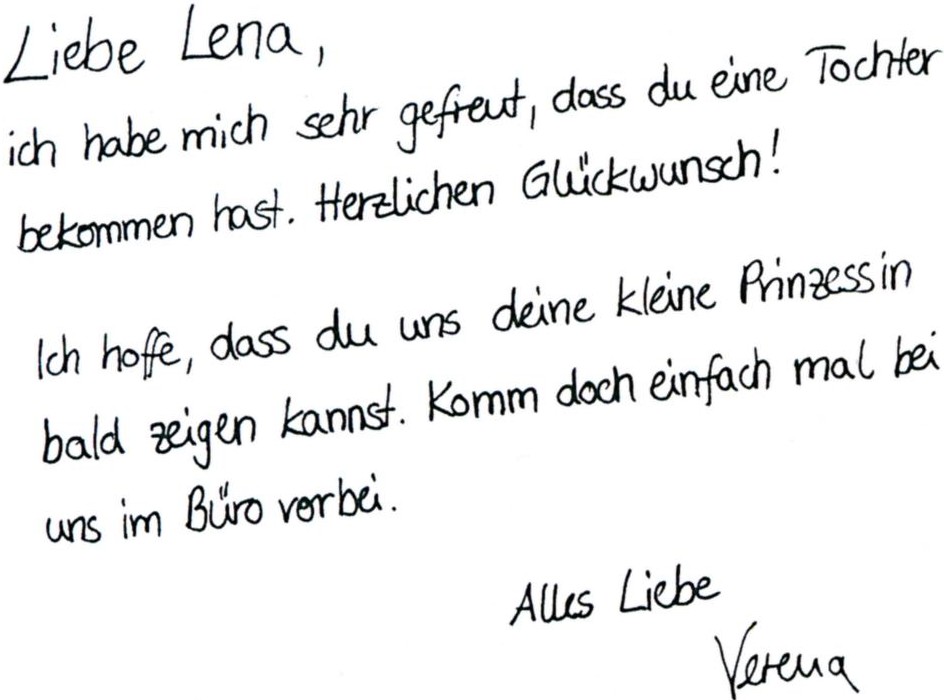 Liebe Lena,
ich habe mich sehr gefreut, dass du eine Tochter
bekommen hast. Herzlichen Glückwunsch!
Ich hoffe, dass du uns deine kleine Prinzessin
bald zeigen kannst. Komm doch einfach mal bei
uns im Büro vorbei.
Alles Liebe
Verena